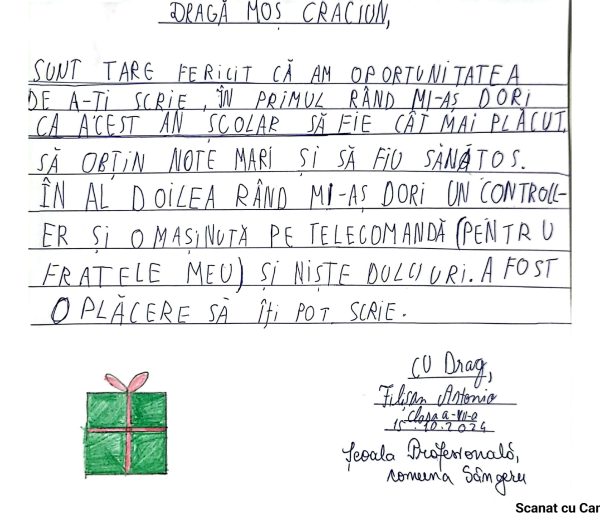 DRAGĂ MOȘ CRACIUN,
SUNT TARE FERICIT CĂ AM OPORTUNITATEA
DE A-ȚI SCRIE, ÎN PRIMUL RÂND MI-AȘ DORI
CA ACEST AN ȘCOLAR SĂ FIE CÂT MAI PLĂCUT,
SĂ OBȚIN NOTE MARI ȘI SĂ FIU SĂNĂTOS.
ÎN AL DOILEA RÂND MI-AȘ DORI UN CONTROLL-
ER ȘI O MAȘINUTĂ PE TELECOMANDĂ (PENTRU
FRATELE MEU) ȘI NIȘTE DULCIURI. A FOST
O PLĂCERE SĂ ÎȚI POT SCRIE.
CU Drag,
Antonio
Clasa a-VII-a
15.10.2024
Școala Profesională,
comuna Sângeru
Scanat cu Car